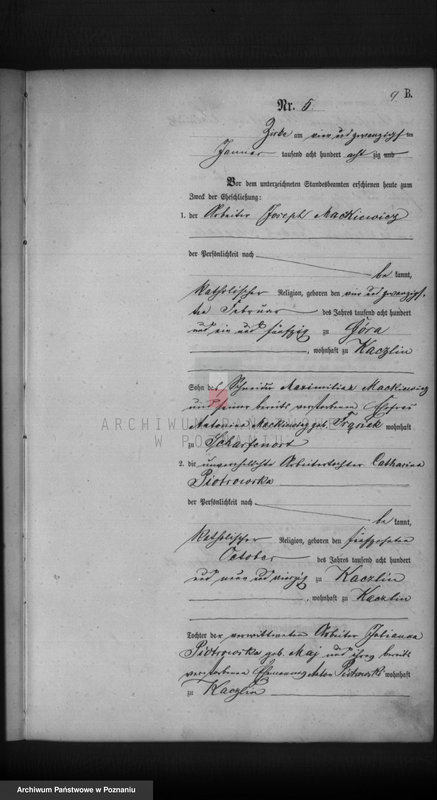 9. B.
Nr. 5.
Zirke am vier und zwanzigsten
Januar tausend acht hundert acht zig und
Vor dem unterzeichneten Standesbeamten erschienen heute zum
Zweck der Eheschließung:
1. der Arbeiter Joseph Mackiewicz
der Persönlichkeit nach
be kannt,
katholischer Religion, geboren den vier und zwanzigs-
ten Februar des Jahres tausend acht hundert
und ein und fünfzig zu Góra
, wohnhaft zu Kaczlin
Sohn des Schneider Maximilian Mackiewicz
und seiner bereits verstorbenen Ehefrau
Antonina Mackiewicz geb. wohnhaft
zu Scharfenort
2. die unverehelichte Arbeitertochter Catharina
Piotrowska
der Persönlichkeit nach
be kannt,
katholischer Religion, geboren den fünfzehnten
October des Jahres tausend acht hundert
und neun und vierzig zu Kaczlin
, wohnhaft zu Kaczlin
Tochter der verwittweten Arbeiter Julianna
Piotrowska geb. Maj und ihres bereits
verstorbenen Ehemannes Anton Piotrowski wohnhaft
zu Kaczlin
ARCHIWUM PAŃSTWOWE
W POZNANIU
Archiwum Państwowe w Poznaniu